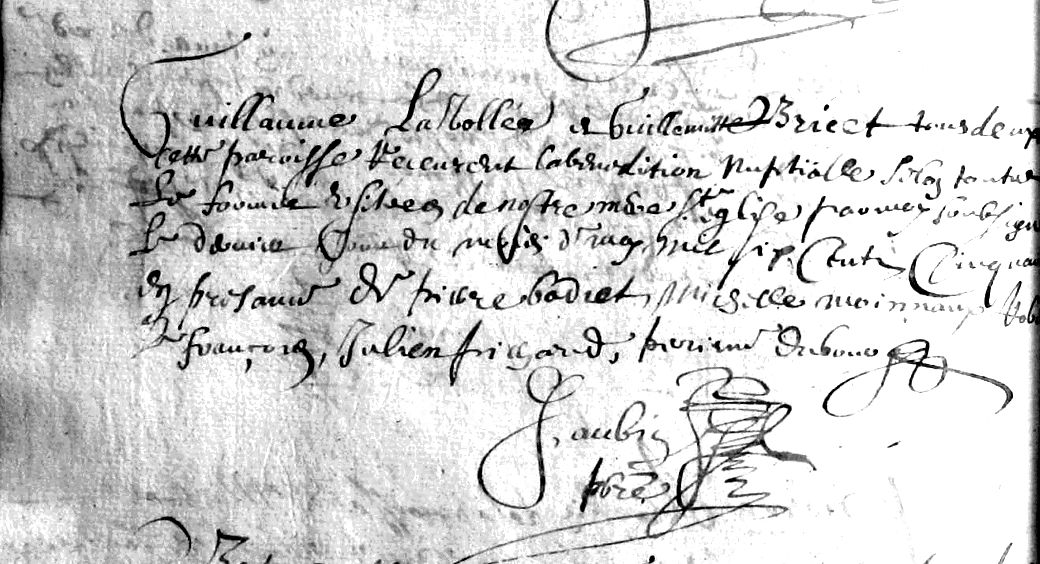 Guillaume La Vollée et Guillemette Bricet tous deux
cette paroisse Receurent la benedition nuptialle selon toute
le forme usitee de nostre mere Ste église par moy soubsigné
Le denier Jour du mois de may mil six Cents Cinqua
En presance de pierre badiet, Michelle moinnaux Rob
le françois, Julien frichard, perrinne dubourg
J, aubin
pbre